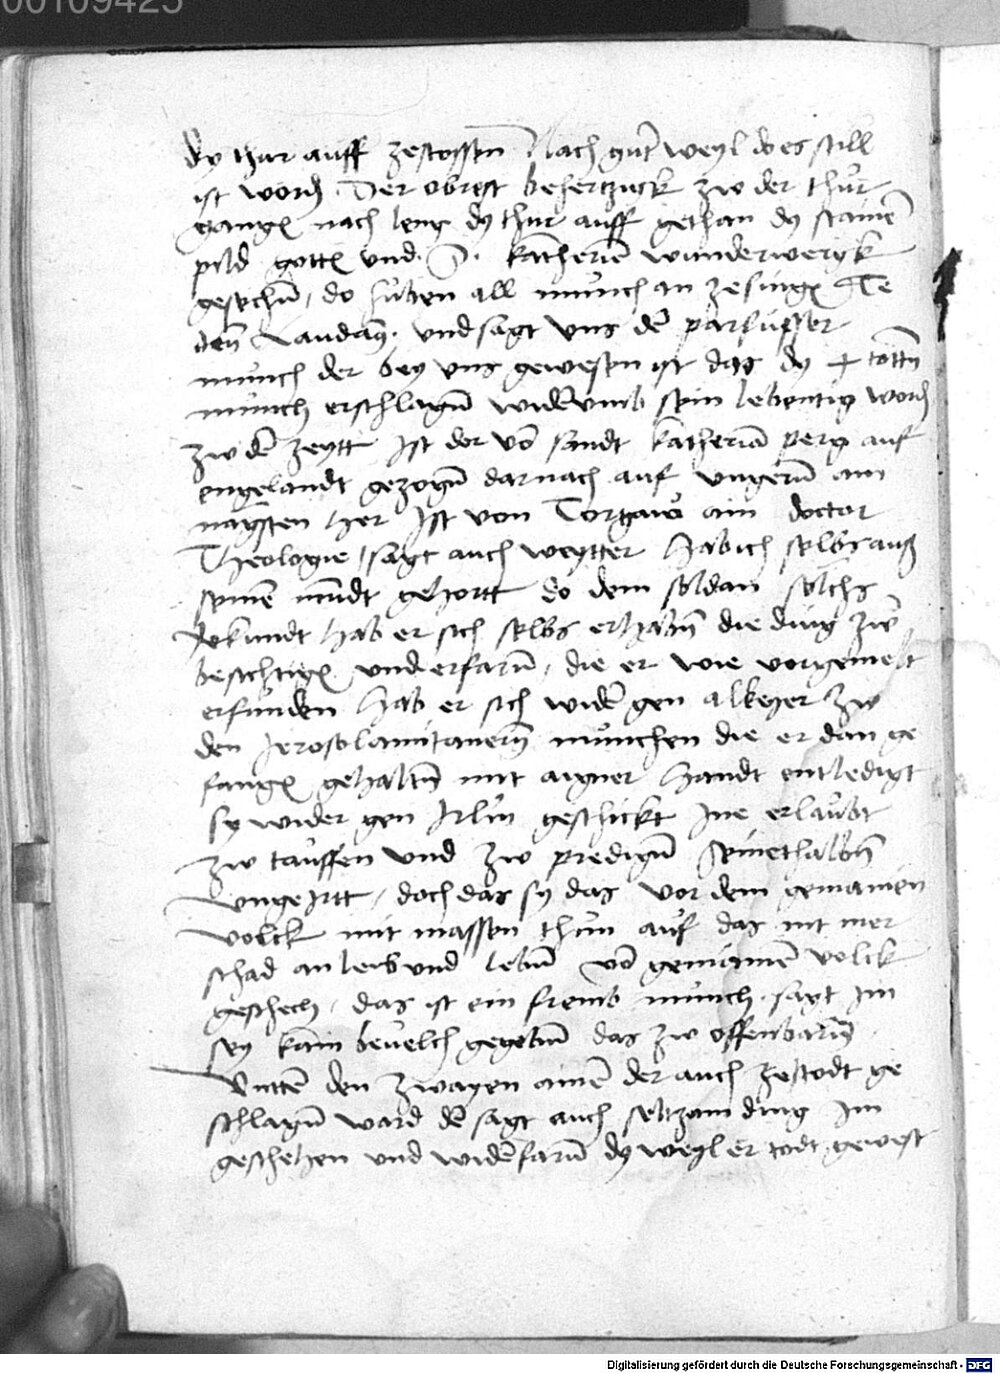 00109425
dy thur auff zestossen Nach gut weyl do es still
ist word Der obrest behertzuck zw der thur
gangē nach leng dy thur auff gethan dy stainē
pild gottꝭ und S. katherinē wunderweryk
gesechn̄ / do huben all munch an zesingē Te
deū Laudamꝰ. und sagt uns dē parfusser
munch der bey uns gewesen ist das dy + tottn̄
munch erschlagn̄ widerumb sein lebentig word
zw dē zeytt Ist der vō sandt katherina perg auf
engelandt gezogn̄ darnach auf ungern̄ am
nagsten her Ist von Torgaw ain doctor
Theologie / sagt auch weytter hab ich selbs auß
seinē mundt gehortt do dem soldan solchs
verkundt hab er sich selbs erhabn̄ die ding zw
besichtigē und erfarn̄ / die er wie vorgemelt
erfunden hab er sich wider gen alkeyer zw
den Jerosolamitanern̄ munchen die er dan ge
fangē gehaltn̄ mit aigner handt entledigt
sy wider gen Jrlm geschickt Jne erlaubt
zw tauffen und zw predign̄ seinethalbn̄
ungejrtt / doch das sy das vor dem gemainen
volck mit massen thun auf das nit mer
schad an leib und lebn̄ vō gemainē volck
geschech / das ist ein fremb munch. sagt Im
sey kain bevelch gegebn̄ das zw offenbarn̄
Untter den zwayen ainē der auch zestodt ge
schlagn̄ ward dē sagt auch seltzam ding Im
geschehen und widerfarn̄ dy weyl er todt gewest
Digitalisierung gefördert durch die Deutsche Forschungsgemeinschaft - DFG